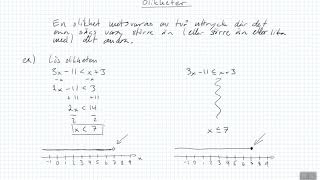 Olikheter
En olikhet motsvaras av två uttryck där det
ena, större än (eller större än eller lika
med) det andra.
ex) Lös olikheten
3x - 11 < x + 3
2x - 11 < 3
+11 +11
2x < 14
2 2
x < 7
-1 0 1 2 3 4 5 6 7 8 9 x
3x - 11 ≤ x + 3
x ≤ 7
-1 0 1 2 3 4 5 6 7 8 9